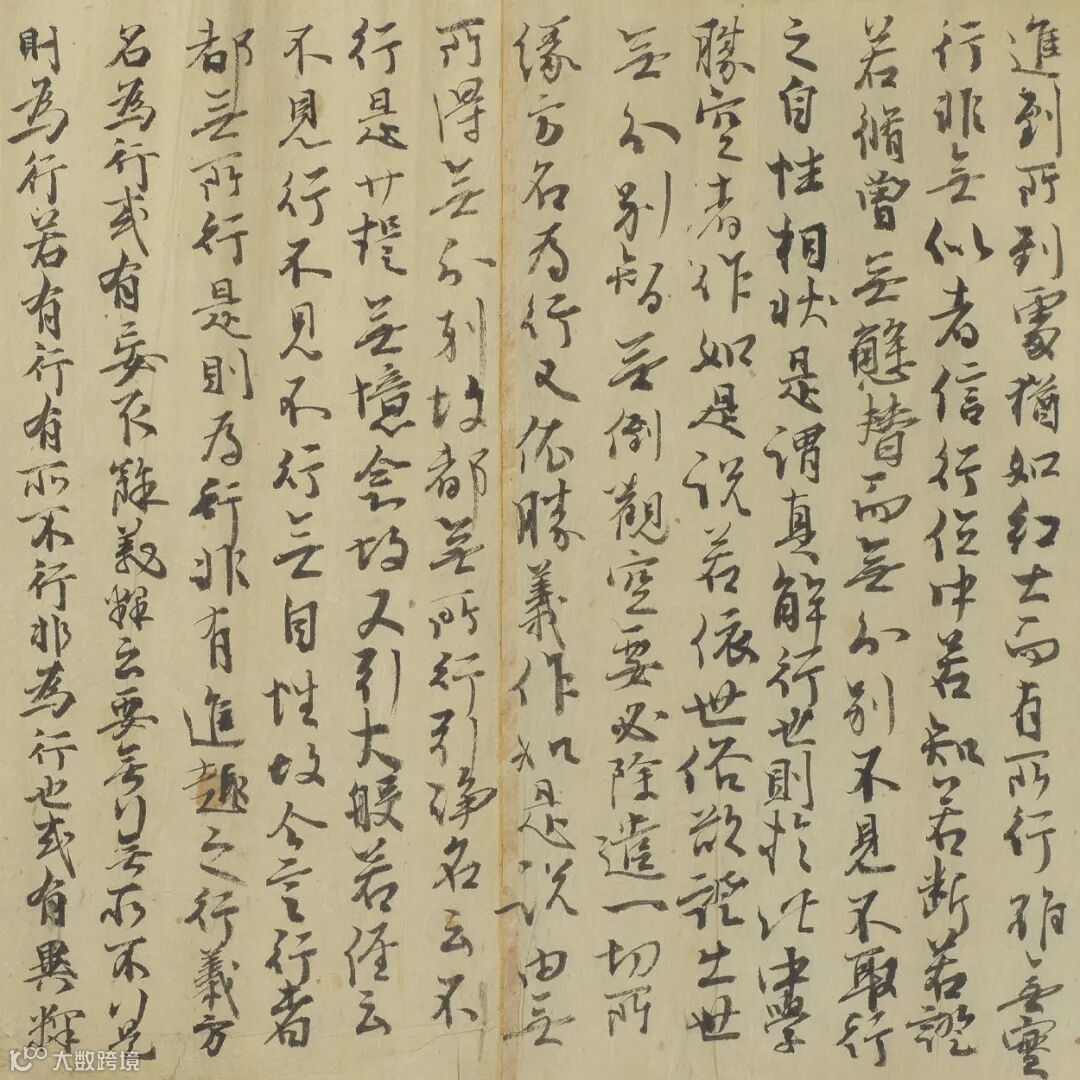 進到所到處猶如幻士而有所行雖無實
行非無似者信行位中若知若斷若證
若脩曾無懈替而無分別不見不取行
之自性相狀是謂真解行也則於此中學
勝空者作如是說若依世俗欲證出世
無分別智無倒觀空要必除遣一切所
緣方名為行又依勝義作如是說由無
所得無分別故都無所行引淨名云不
行是菩提無憶念故又引大般若經云
不見行不見不行無自性故今言行者
都無所行是則為行非有進趣之行義方
名為行或有妄 餘義釋云要無行無所不行
則為行若有行有所不行非為行也或有異釋
大数跨境